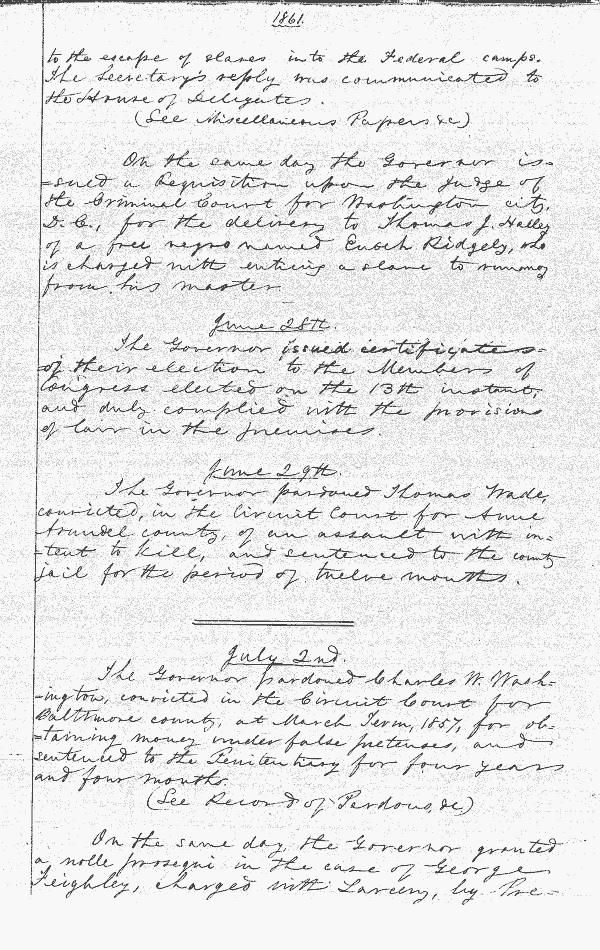 1861.
to the escape of slaves into the Federal camps.
The Secretary's reply was communicated to
the House of Delegates.
(See Miscellaneous Papers &c)
On the same day the Governor is-
=sued a Requisition upon the Judge of
the Criminal Court for Washington city,
D.C., for the delivery to Thomas J. Halley
of a free negro named Enoch Ridgely, who
is charged with enticing a slave to runaway
from his master.
June 28th.
The Governor issued certificates
of their election to the Members of
Congress elected on the 13th instant,
and duly complied with the provisions
of law in the premises.
June 29th.
The Governor pardoned Thomas Wade,
convicted, in the Circuit Court for Anne
Arundel county, of an assault with in-
-tent to Kill, and sentenced to the county
jail for the period of twelve months.
July 2nd.
The Governor pardoned Charles W. Wash-
-ington, convicted in the Circuit Court for
Baltimore county, at March Term, 1857, for ob-
=taining money under false pretenses, and
sentenced to the Penitentiary for four years
and four months.
(See Record of Pardons, &c)
On the same day, the Governor granted
a nolle prosequi in the case of George
Feighley, charged with Larceny, by Pre-